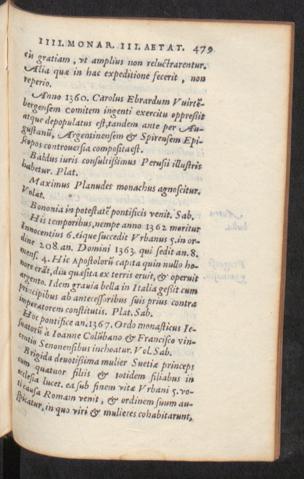 IIII. MONAR. III. AETAT. 479
eū gratiam, vt amplius non reluctrarentur.
Alia quæ in hac expeditione fecerit, non
reperio.
Anno 1360. Carolus Ebrardum Vuirtē-
bergensem comitem ingenti exercitu oppressit
atque depopulatus est, tandem ante per Au-
gustanū, Argentinensem & Spirensem Epi-
scopos controuersia composita est.
Baldus iuris consultissimus Perusii illustris
habetur. Plat.
Maximus Planudes monachus agnoscitur.
Volat.
Bononia in potestatē pontificis venit. Sab.
His temporibus, nempe anno 1362 moritur
Innocentius 6. eique succedit Vrbanus 5. in or-
dine 208. an. Domini 1363. qui sedit an. 8.
mens. 4. Hic Apostolorū capita quin nullo ho-
nore erāt, diu quæsita ex terris eruit, & operuit
argento. Idem grauia bella in Italia gessit cum
Principibus ab antecessoribus suis prius contra
imperatorem constitutis. Plat. Sab.
Hoc pontifice an. 1367. Ordo monasticus Ie-
suatorū à Ioanne Colūbano & Francisco vin-
centio Senonensibus inchoatur. Vol. Sab.
Brigida deuotissima mulier Suetiæ princeps
cum quatuor filiis & totidem filiabus in
ecclesia lucet. ea sub finem vitæ Vrbani 5. vo-
ti causa Romam venit, & ordinem suum au-
spicatur, in quo viri & mulieres cohabitarunt,